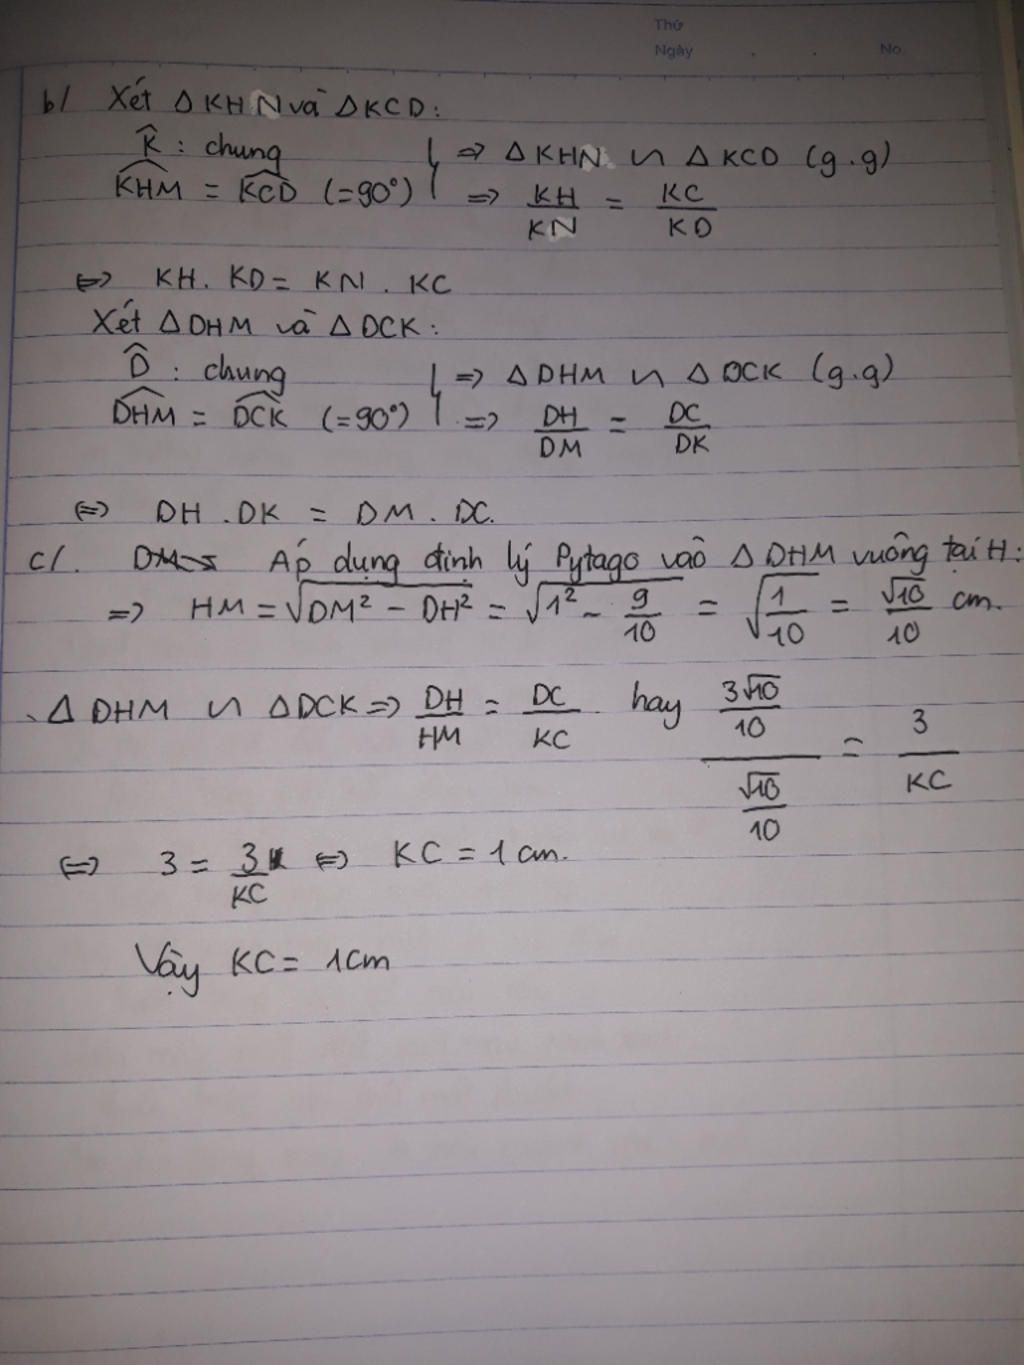 Thứ
Ngày . . No.
b/ Xét △KHN và △KCD:
K̂ : chung ⇒ △KHN ∽ △KCD (g.g)
KHM = KCD (=90°) ⇒ KH/KN = KC/KD
⇔ KH. KD = KN . KC
Xét △DHM và △DCK:
D̂ : chung ⇒ △DHM ∽ △DCK (g.g)
DHM = DCK (=90°) ⇒ DH/DM = DC/DK
⇔ DH . DK = DM . DC.
c/. Áp dụng định lý Pytago vào △DHM vuông tại H:
⇒ HM = √(DM² - DH²) = √(1² - 9/10) = √(1/10) = √10/10 cm.
△DHM ∽ △DCK ⇒ DH/HM = DC/KC hay (3√10/10)/(√10/10) = 3/KC
⇔ 3 = 3/KC ⇔ KC = 1 cm.
Vậy KC = 1cm